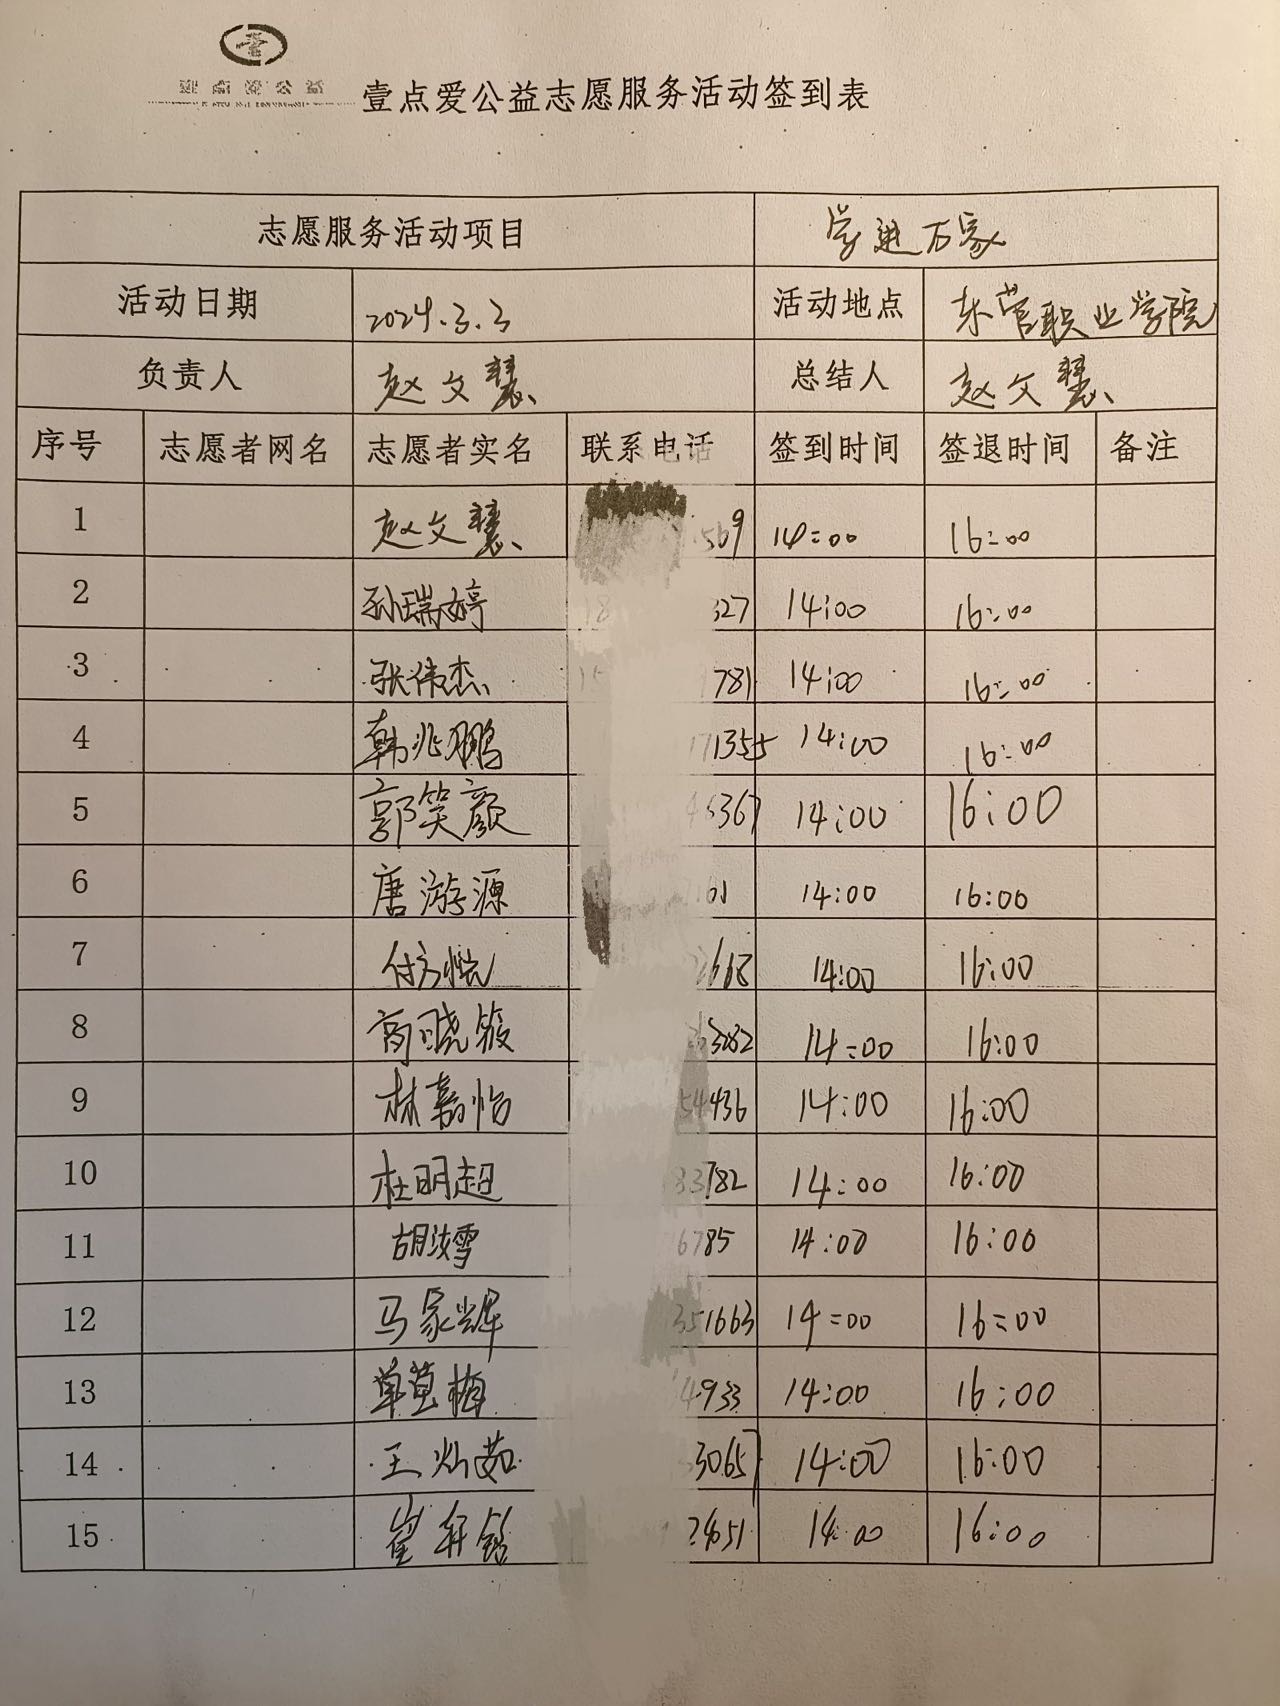 壹点爱公益
壹点爱公益志愿服务活动签到表
志愿服务活动项目 学进万家
活动日期 2024.3.3 活动地点 东营职业学院
负责人 赵文慧 总结人 赵文慧
序号 志愿者网名 志愿者实名 联系电话 签到时间 签退时间 备注
1 赵文慧 569 14:00 16:00
2 孙瑞婷 18 327 14:00 16:00
3 张伟杰 15 781 14:00 16:00
4 韩兆鹏 171355 14:00 16:00
5 郭笑颜 45367 14:00 16:00
6 唐游源 161 14:00 16:00
7 付方悦 2668 14:00 16:00
8 高晓筱 63282 14:00 16:00
9 林嘉怡 54436 14:00 16:00
10 杜明超 83782 14:00 16:00
11 胡汝雪 6785 14:00 16:00
12 马家辉 351663 14:00 16:00
13 单萱梅 4933 14:00 16:00
14 王灿茹 53065 14:00 16:00
15 崔轩铭 14:00 16:00